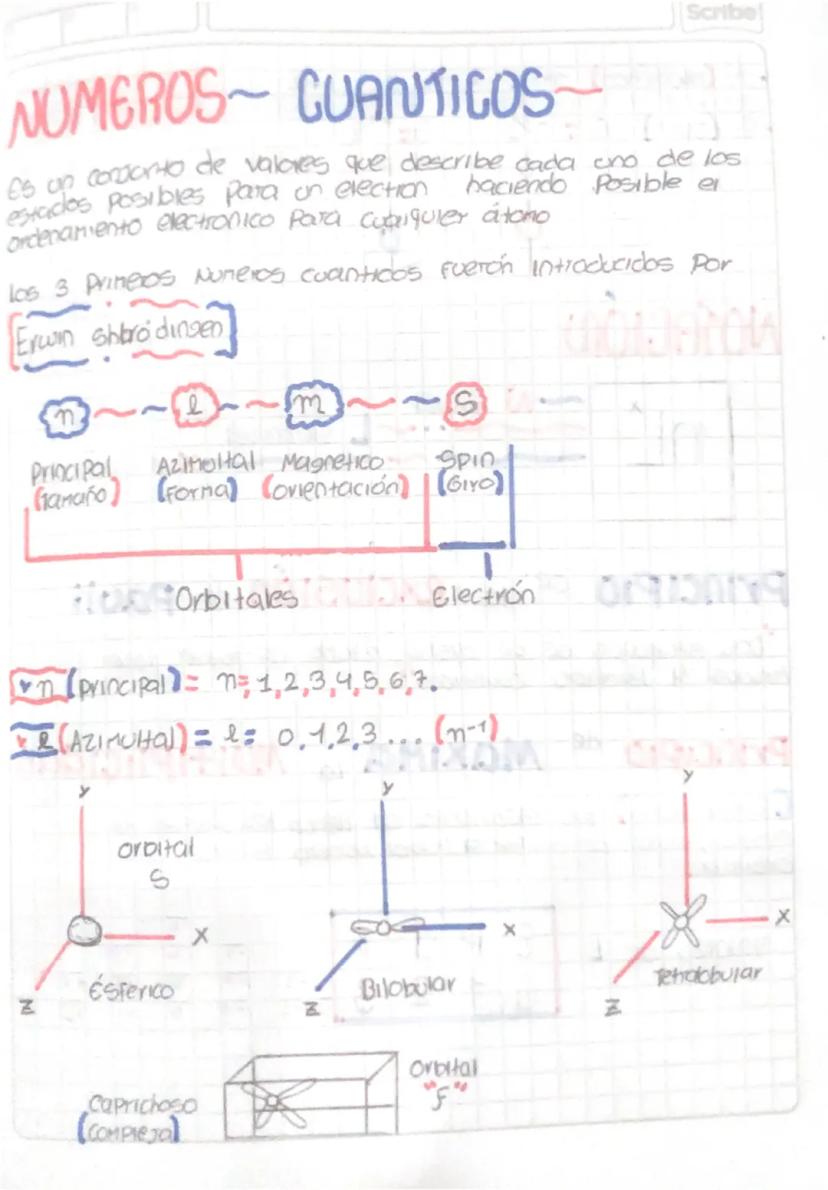 Scribe
NUMEROS~ CUANTICOS~
Es un conjunto de valores que describe cada uno de los
estados posibles para un electron haciendo posible el
ordenamiento electronico para cualquier átomo
los 3 primeros Numeros cuanticos fuerón introducidos por
[Erwin Shbrödingen]
n ~ ~ l ~ ~ m ~ ~ S
Principal Azimultal Magnetico Spin
(Tamaño) (Forma) (orientación) (Giro)
Orbitales Electrón
n (principal) = n= 1,2,3,4,5,6,7.
l (Azimultal) = l= 0,1,2,3... (n-1)
Y Y Y
orbital
S
X X X
Ésferico Bilobular Tetralobular
Z Z Z
Orbital
"F"
Caprichoso
(compleja)